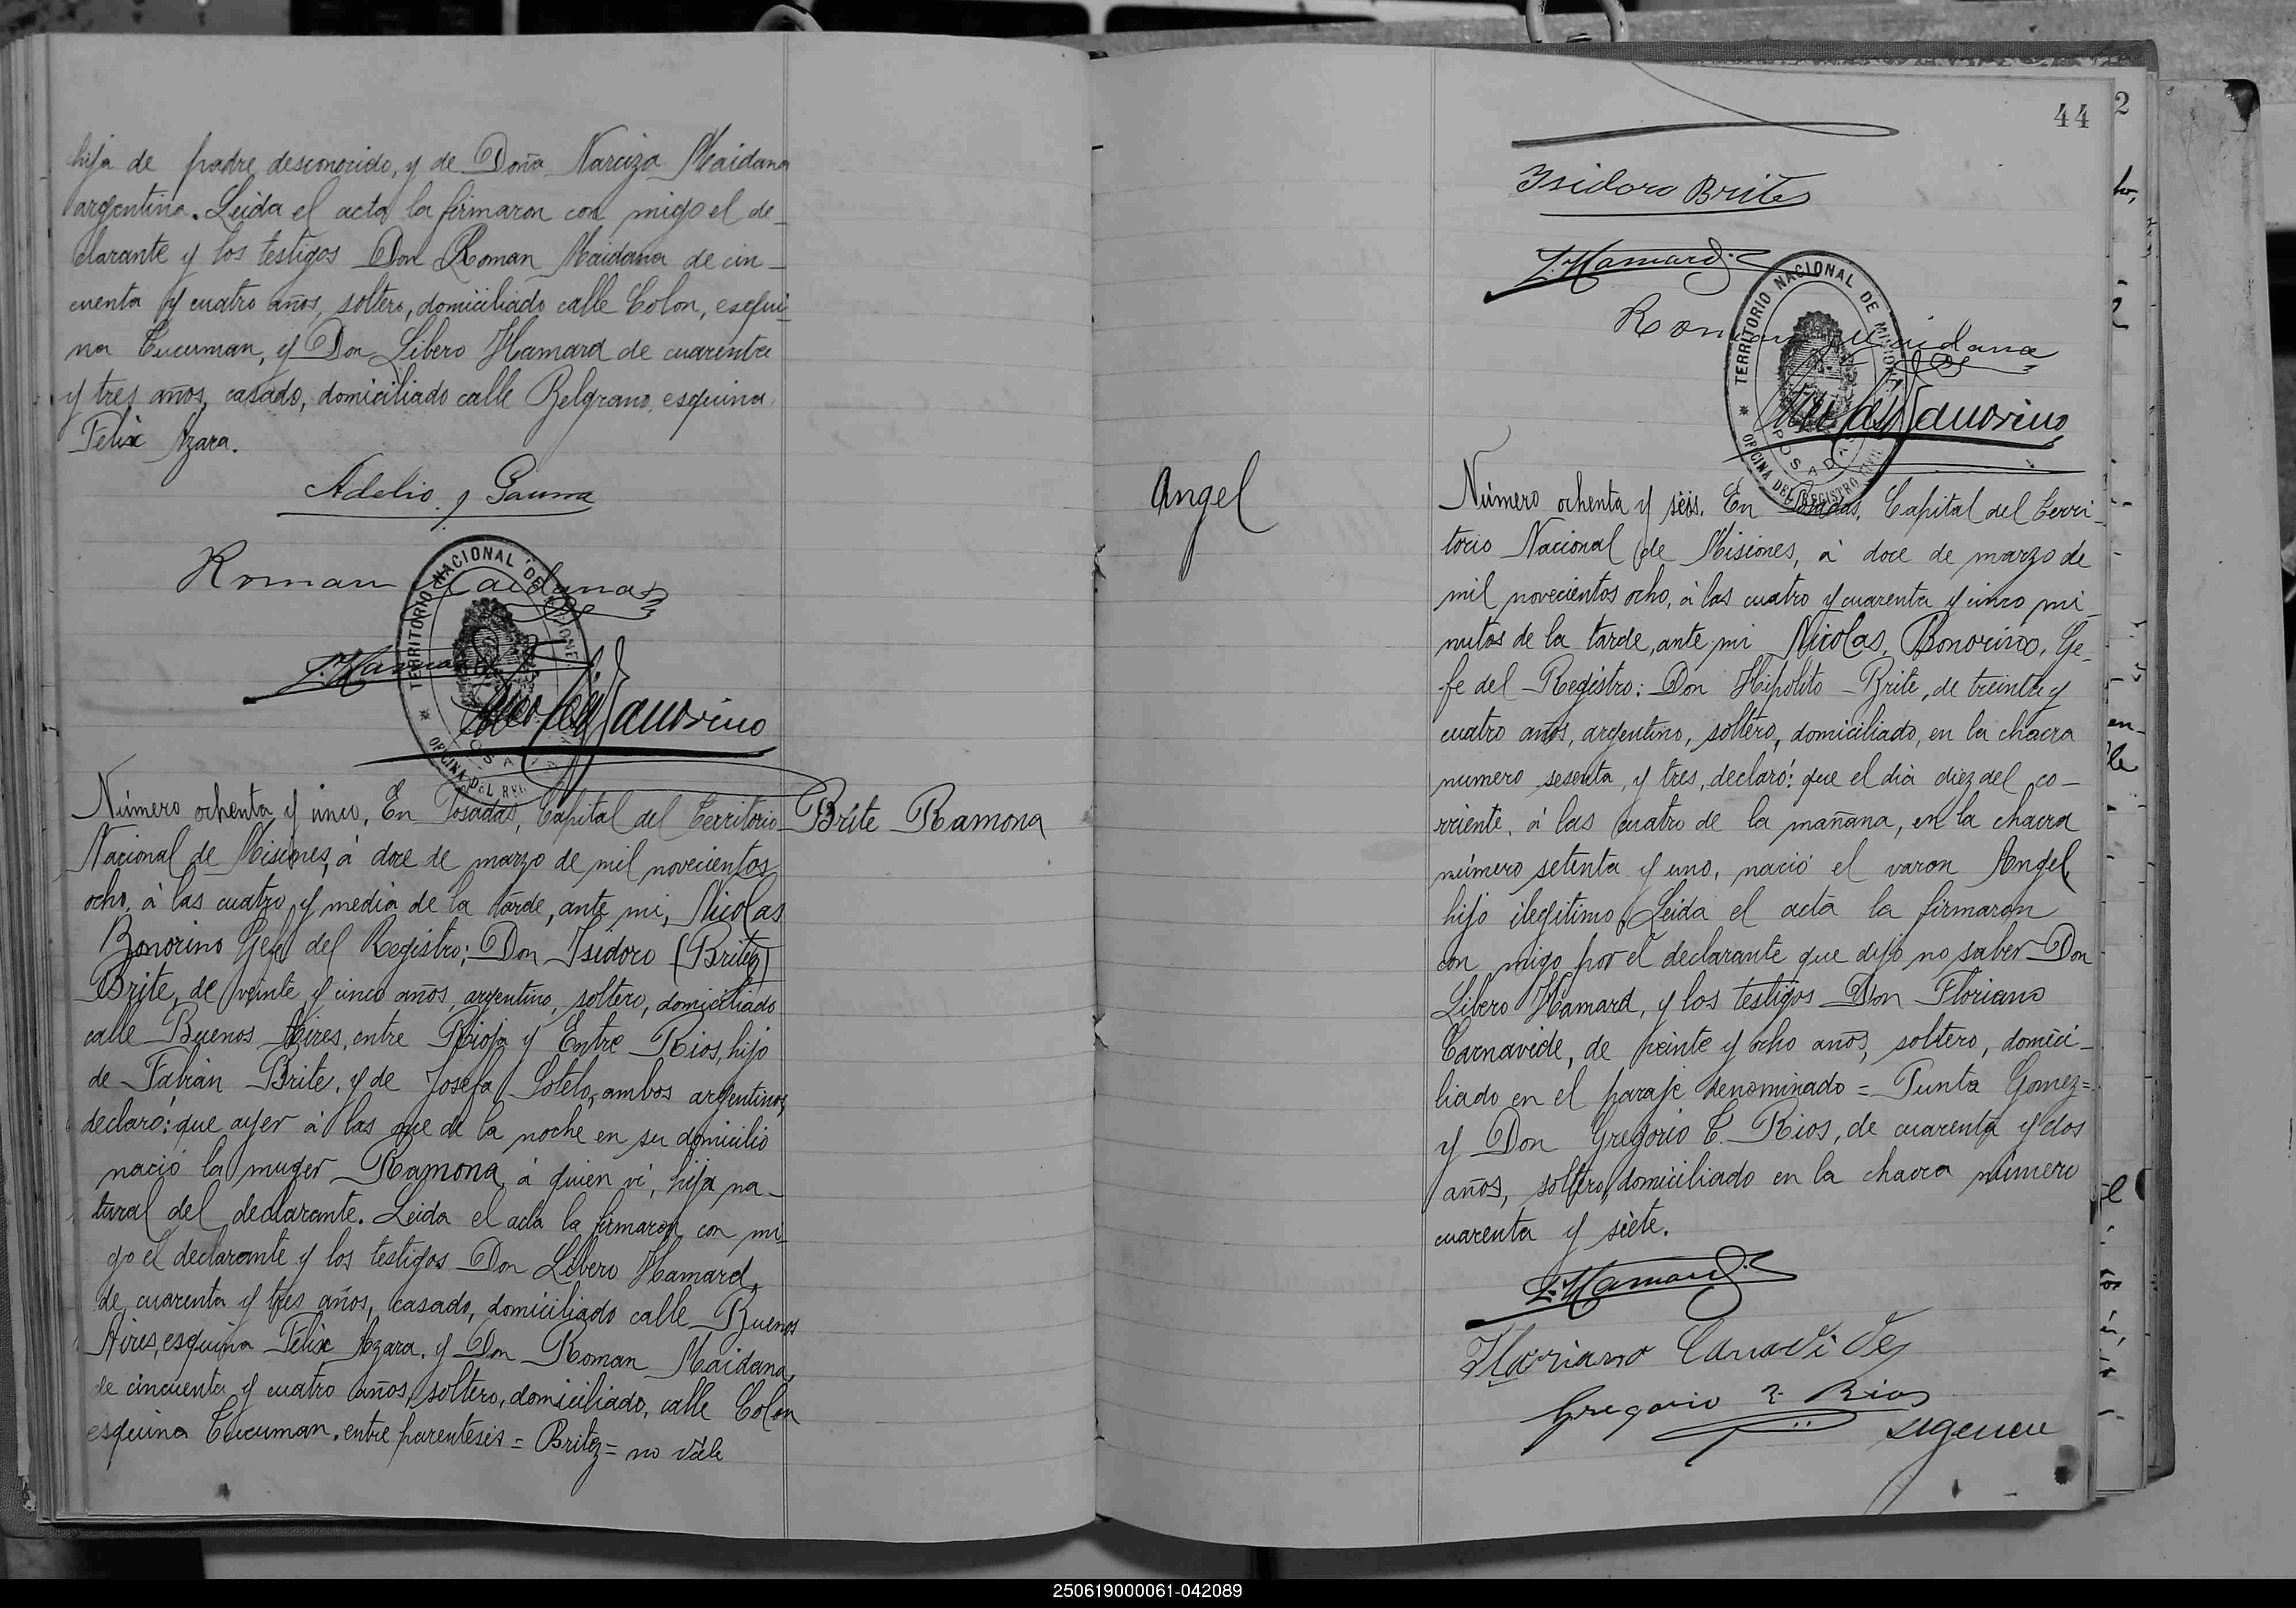 hija de padre desconocido, y de Doña Narciza Maidana
argentina. Leida el acta la firmaron con migo el de_
clarante y los testigos Don Roman Maidana de cin_
cuenta y cuatro años, soltero, domiciliado calle Colon, esqui_
na Tucuman, y Don Libero Hamard de cuarenta
y tres años, casado, domiciliado calle Belgrano, esquina
Felix Azara.
Adelio Gauna
Roman Maidana
L. Hamard
TERRITORIO NACIONAL DE MISIONES
OFICINA DEL REG
Nicolas Bonorino
Número ochenta y cinco. En Posadas, Capital del Territorio
Brite Ramona
Nacional de Misiones, á doce de marzo de mil novecientos
ocho, á las cuatro y media de la tarde, ante mi, Nicolas
Bonorino Gefe del Registro; Don Isidoro (Britez)
Brite, de veinte y cinco años, argentino, soltero, domiciliado
calle Buenos Aires, entre Rioja y Entre Rios, hijo
de Fabián Brite, y de Josefa Sotelo, ambos argentinos,
declaró: que ayer á las de la noche en su domicilio
nació la muger Ramona, á quien ví, hija na_
tural del declarante. Leida el acta la firmaron con mi_
go el declarante y los testigos Don Libero Hamard,
de cuarenta y tres años, casado, domiciliado calle Buenos
Aires, esquina Felix Azara, y Don Roman Maidana,
de cincuenta y cuatro años, soltero, domiciliado, calle Colon
esquina Tucuman. entre parentesis = Britez = no vale
44
Isidoro Brite
L. Hamard
Roman Maidana
TERRITORIO NACIONAL DE MISIONES
POSADAS
OFICINA DEL REGISTRO CIVIL
Nicolas Bonorino
Angel
Número ochenta y séis. En Posadas, Capital del Terri_
torio Nacional de Misiones, á doce de marzo de
mil novecientos ocho, á las cuatro y cuarenta y cinco mi_
nutos de la tarde, ante mi Nicolas Bonorino, Ge_
fe del Registro: Don Hipolito Brite, de treinta y
cuatro años, argentino, soltero, domiciliado, en la chacra
numero sesenta, y tres, declaró: que el dia diez del co_
rriente, á las cuatro de la mañana, en la chacra
número setenta y uno, nació el varon Angel,
hijo ilegitimo. Leida el acta la firmaron
con migo por el declarante que dijo no saber Don
Libero Hamard, y los testigos Don Floriano
Carnavide, de veinte y ocho años, soltero, domici_
liado en el paraje denominado = Punta Gomez =
y Don Gregorio T. Rios, de cuarenta y dos
años, soltero, domiciliado en la chacra número
cuarenta y siete.
L. Hamard
Gregorio Rios
250619000061-042089